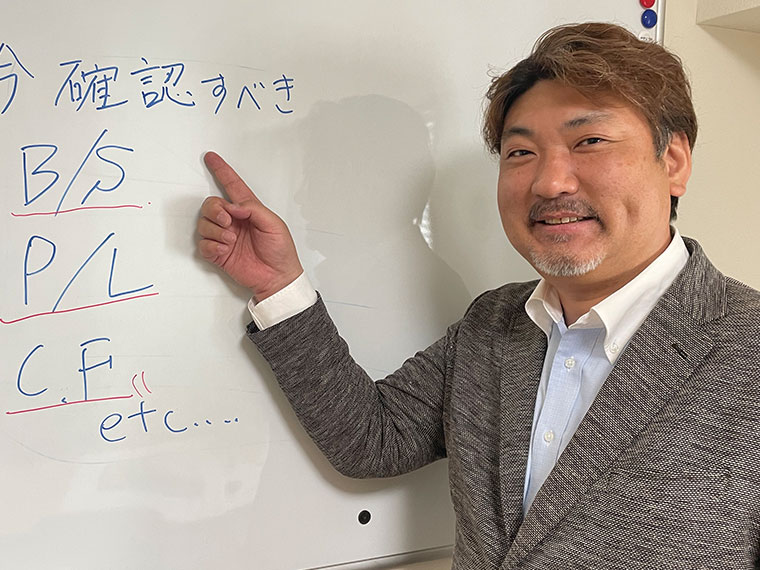 今 確認すべき
B/S
P/L
C.F
etc....